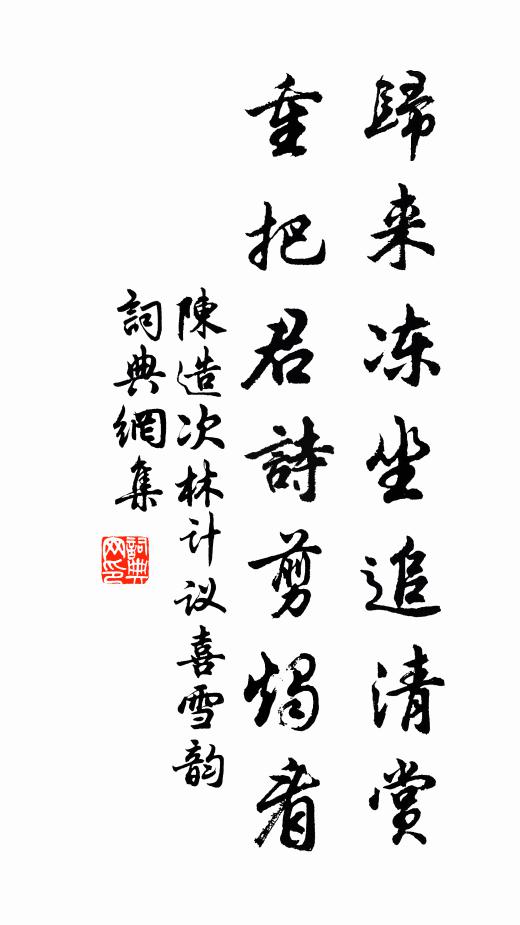 歸来冻坐追清赏
重把君詩剪燭看
陳造次林计议喜雪韵
詞典網集
詞典网印